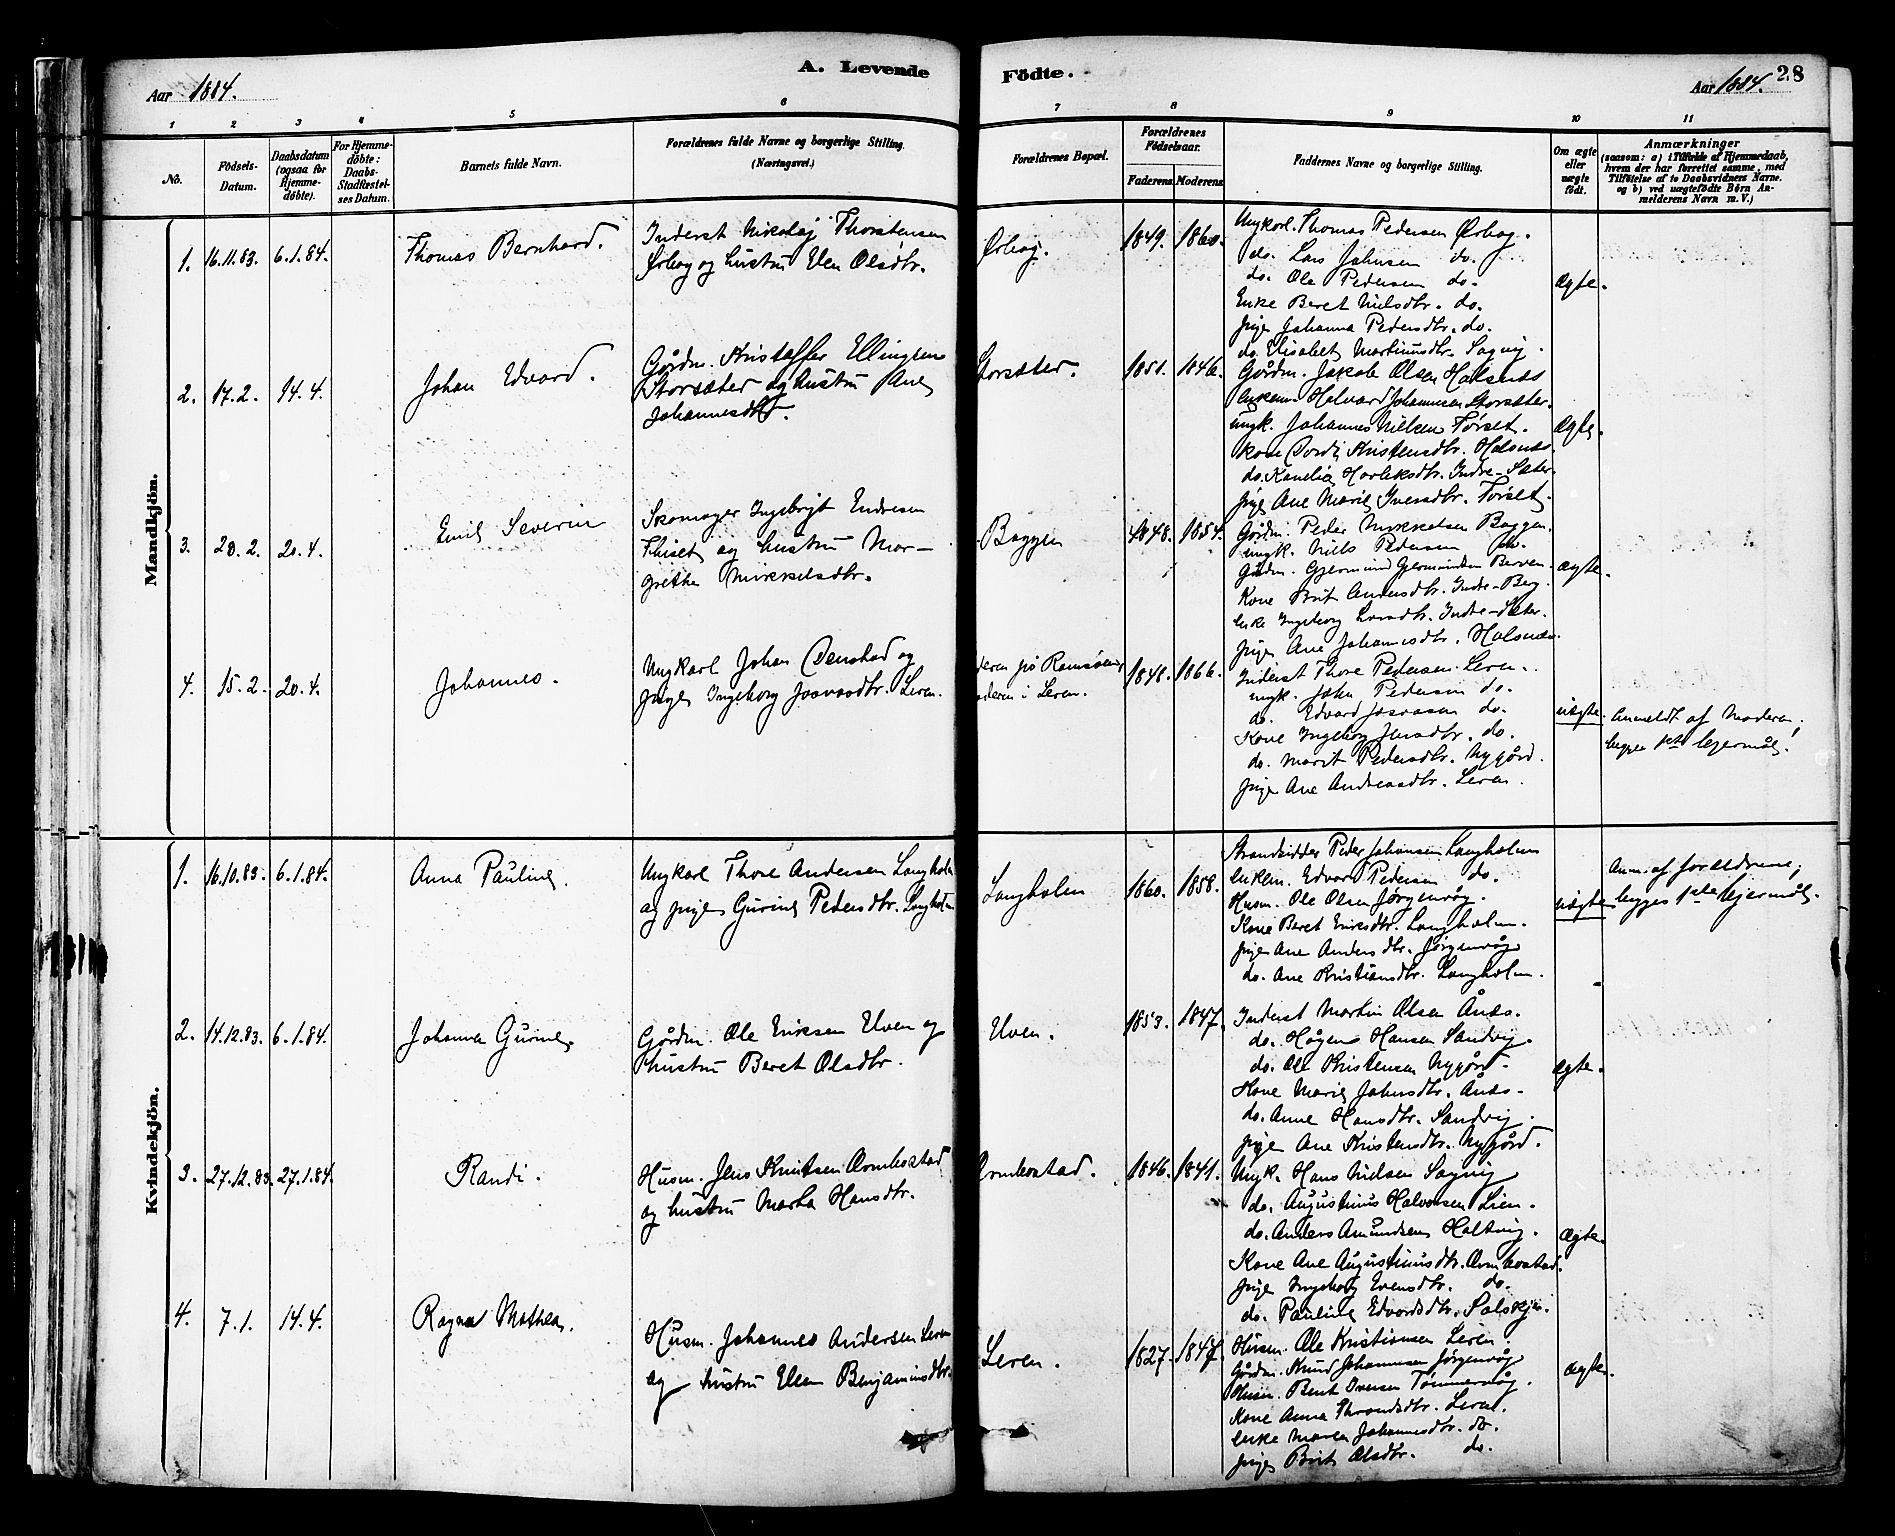 A. Levende Fødte.
28
Aar 1884.
Aar 1884.
1 2 3 4 5 6 7 8 9 10 11
No.
Födsels-Datum.
Daabsdatum (ogsaa for Hjemme-döbte).
For Hjemme-döbte: Daabs-Stadfæstel-ses Datum.
Barnets fulde Navn.
Forældrenes fulde Navne og borgerlige Stilling. (Næringsvei.)
Forældrenes Bopæl.
Forældrenes Födselsaar.
Faderens. Moderens.
Faddernes Navne og borgerlige Stilling.
Om ægte eller uægte födt.
Anmærkninger
(saasom: a) i Tilfælde af Hjemmedaab,
hvem der har forrettet samme, med
Tilföielse af to Daabsvidners Navne.
og b) ved uægtefödte Börn An-
melderens Navn m. V.)
Mandkjön.
1. 16.11.83. 6.1.84. Thomas Bernhard.
Inderst Nikolaj Thorstensen
Ørbog og hustru Elen Olsdtr.
Ørbog. 1849. 1860.
Ungkarl. Thomas Pedersen Ørbog.
do. Lars Johnsen do.
do. Ole Pedersen do.
Enke Beret Nielsdtr. do.
pige Johanna Pedersdtr. do.
do. Elisabet Martinusdtr. Sagvig.
Ægte.
2. 17.2. 14.4. Johan Edvard.
Gårdm. Kristoffer Ellingsen
Storsæter og hustru Ane
Johannesdtr.
Storsæter. 1851. 1846.
Gårdm. Jakob Olsen Halsnæs
Enkem. Halvard Johannesen Storsæter.
ungk. Johannes Nielsen Tørset.
kone Kristensdtr. Halsnæs.
do. Kanelia Indre-Sæter.
pige Ane Marie Iversdtr. Tørset.
Ægte.
3. 20.2. 20.4. Emil Severin
Skomager Ingebrigt Endresen
Thiset og hustru Mar-
grethe Mikkelsdtr.
Baggen 1848. 1854.
Gårdm. Peder Mikkelsen Baggen.
ungk. Niels Pedersen do.
Gårdm. Gjermund Gjermundsen Berven.
Kone Brit Andersdtr. Indre-Berg.
Enke Ingeborg Larsdtr. Indre-Sæter.
pige Ane Johannesdtr. Halsnæs.
ægte.
4. 15.2. 20.4. Johannes.
Ungkarl Johan Denstad og
pige Ingeborg Josvasdtr. Leren.
deren på Ramsøen,
oderen i Leren.
1848. 1866.
Inderst Thore Pedersen Leren.
ungk. John Pedersen do.
do. Edvard Josvasen do.
Kone Ingeborg Jensdtr. do.
do. Marit Pedersdtr. Nygård.
pige Ane Andreasdtr. Leren.
uægte. Anmeldt af Moderen;
begges 1ste lejermål.
Kvindekjön.
1. 16.10.83. 6.1.84. Anna Pauline.
Ungkarl Thore Andersen Langholm
og pige Gurine Pedersdtr. Langholm
Langholm 1860. 1858.
Strandsidder Peder Johansen Langholm
Enkem. Edvard Pedersen do.
Husm. Ole Olsen Jørgenvåg.
Kone Beret Eriksdtr. Langholm.
pige Ane Andersdtr. Jørgenvåg
do. Ane Kristiansdtr. Langholm.
uægte Anm. af forældrene;
begges 1ste lejermål.
2. 14.12.83. 6.1.84. Johanna Gurine.
Gårdm. Ole Eriksen Elven og
hustru Beret Olsdtr.
Elven. 1853. 1847.
Inderst Martin Olsen Ånes.
do. Hågen Hansen Sandvig.
do. Ole Kristensen Nygård.
Kone Marie Johnsdtr. Ånes.
do. Anne Hansdtr. Sandvig.
pige Ane Kristensdtr. Nygård.
ægte.
3. 27.12.83. 27.1.84. Randi.
Husm. Jens Knutsen Ormbostad
og hustru Marta Hansdtr.
Ormbostad. 1846. 1841.
Ungk. Hans Nielsen Sagvig
do. Augustinus Halvorsen Lien.
do. Anders Amundsen Holtvig.
Kone Ane Augustinusdtr. Ormbostad.
pige Ingeborg Evensdtr. do.
do. Pauline Edvardsdtr. Solskjen.
Ægte.
4. 7.1. 14.4. Ragna Mathea.
Husm. Johannes Andersen Leren
og hustru Elen Benjaminsdtr.
Leren. 1827. 1847.
Husm. Ole Kristiansen Leren.
Gårdm. Knud Johannesen Jørgenvåg
Husm. Bent Iversen Tømmervåg.
Kone Anna Throndsdtr. Leren.
Enke Maren Johannesdtr. do.
pige Brit Olsdtr. do.
ægte.